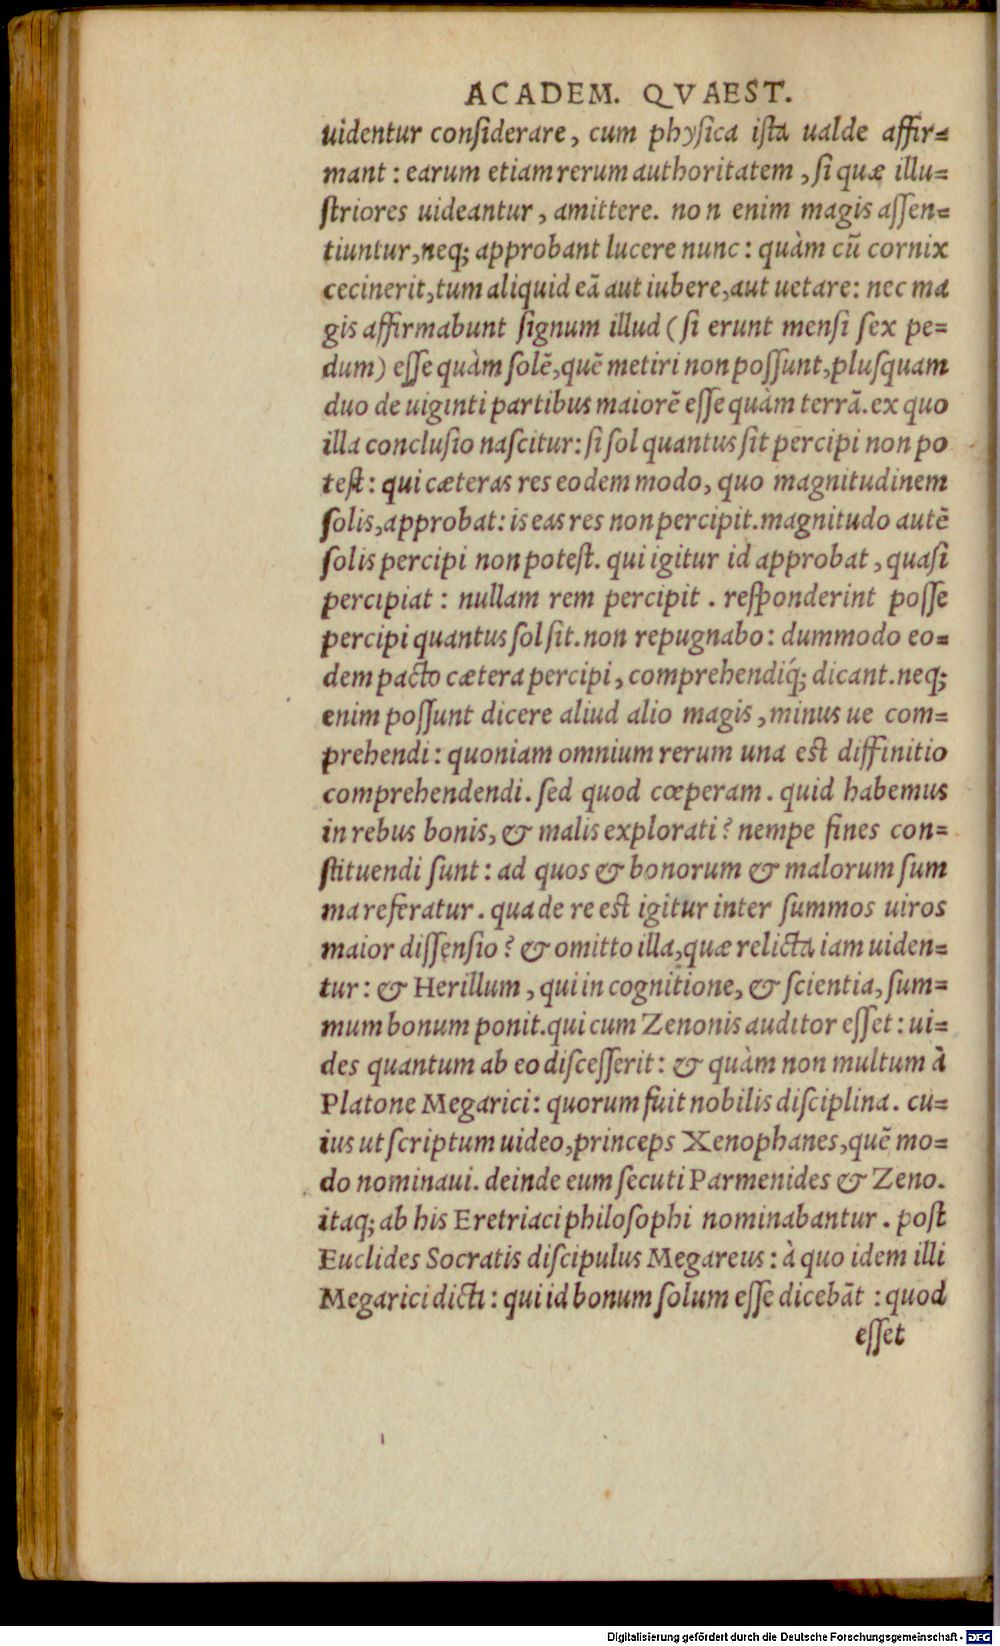 ACADEM. QVAEST.
uidentur conſiderare, cum phyſica iſta ualde affir-
mant: earum etiam rerum authoritatem, ſi quæ illu-
ſtriores uideantur, amittere. non enim magis aſſen-
tiuntur, neq; approbant lucere nunc: quàm cū cornix
cecinerit, tum aliquid eā aut iubere, aut uetare: nec ma
gis affirmabunt ſignum illud (ſi erunt menſi ſex pe-
dum) eſſe quàm ſolē, quē metiri non poſſunt, pluſquam
duo de uiginti partibus maiorē eſſe quàm terrā. ex quo
illa concluſio naſcitur: ſi ſol quantus ſit percipi non po
teſt: qui cæteras res eodem modo, quo magnitudinem
ſolis, approbat: is eas res non percipit. magnitudo autē
ſolis percipi non poteſt. qui igitur id approbat, quaſi
percipiat: nullam rem percipit. reſponderint poſſe
percipi quantus ſol ſit. non repugnabo: dummodo eo-
dem pacto cætera percipi, comprehendiq́; dicant. neq;
enim poſſunt dicere aliud alio magis, minus ue com-
prehendi: quoniam omnium rerum una eſt diffinitio
comprehendendi. ſed quod cœperam. quid habemus
in rebus bonis, & malis explorati? nempe fines con-
ſtituendi ſunt: ad quos & bonorum & malorum ſum
ma referatur. qua de re eſt igitur inter ſummos uiros
maior diſſenſio? & omitto illa, quæ relicta iam uiden-
tur: & Herillum, qui in cognitione, & ſcientia, ſum-
mum bonum ponit. qui cum Zenonis auditor eſſet: ui-
des quantum ab eo diſceſſerit: & quàm non multum à
Platone Megarici: quorum fuit nobilis diſciplina. cu-
ius ut ſcriptum uideo, princeps Xenophanes, quē mo-
do nominaui. deinde eum ſecuti Parmenides & Zeno.
itaq; ab his Eretriaci philoſophi nominabantur. poſt
Euclides Socratis diſcipulus Megareus: à quo idem illi
Megarici dicti: qui id bonum ſolum eſſe dicebāt: quod
eſſet
Digitalisierung gefördert durch die Deutsche Forschungsgemeinschaft - DFG